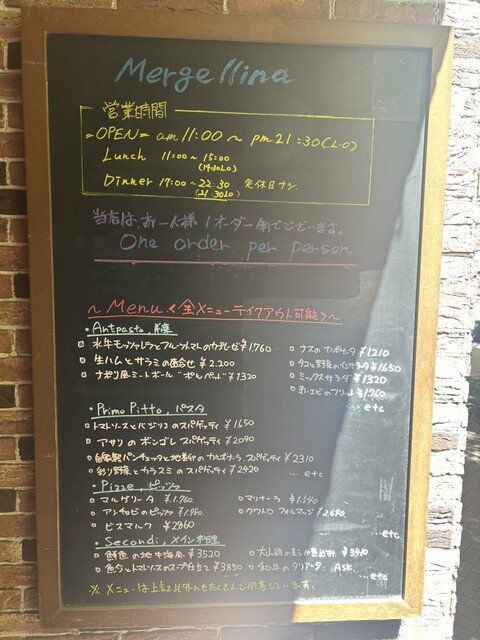 Mergellina
営業時間
=OPEN= am 11:00 ~ pm 21:30 (L.O)
Lunch 11:00~15:00
(14:30LO)
Dinner 17:00~22:30 定休日ナシ
(21:30LO)
当店は、お一人様1オーダー制でございます。
One order per person
~Menu <全メニューテイクアウト可能>~
・Antpasto. 前菜
水牛モッツァレラとフルーツトマトのカプレーゼ ¥1760
生ハムとサラミの盛合せ ¥2.200
ナポリ風ミートボール "ポルペット" ¥1320
ナスのカポナータ ¥1210
タコと野菜のインサラータ ¥1650
ミックスサラダ ¥1320
赤エビのフリット ¥1.760
...etc
・Primo Pitto. パスタ
トマトソースとバジリコのスパゲッティ ¥1650
アサリのボンゴレ スパゲッティ ¥2090
自家製パンチェッタと地養卵のカルボナーラ スパゲッティ ¥2310
彩り野菜とカラスミのスパゲッティ ¥2420
... etc
・Pizze. ピッツァ
マルゲリータ ¥1.760.
アンチョビのピッツァ ¥1980.
ビスマルク ¥2860
マリナーラ ¥1.540
クワトロ フォルマッジ ¥2.690.
...etc
・Secondi. メイン料理
鮮魚の地中海風 ¥3520
魚介のトマトソースのスープ仕立て ¥3850
大山鶏の 煮込み ¥3410
和牛のタリアータ ASK.
...etc
※メニューは上記以外にもたくさんご用意しています。